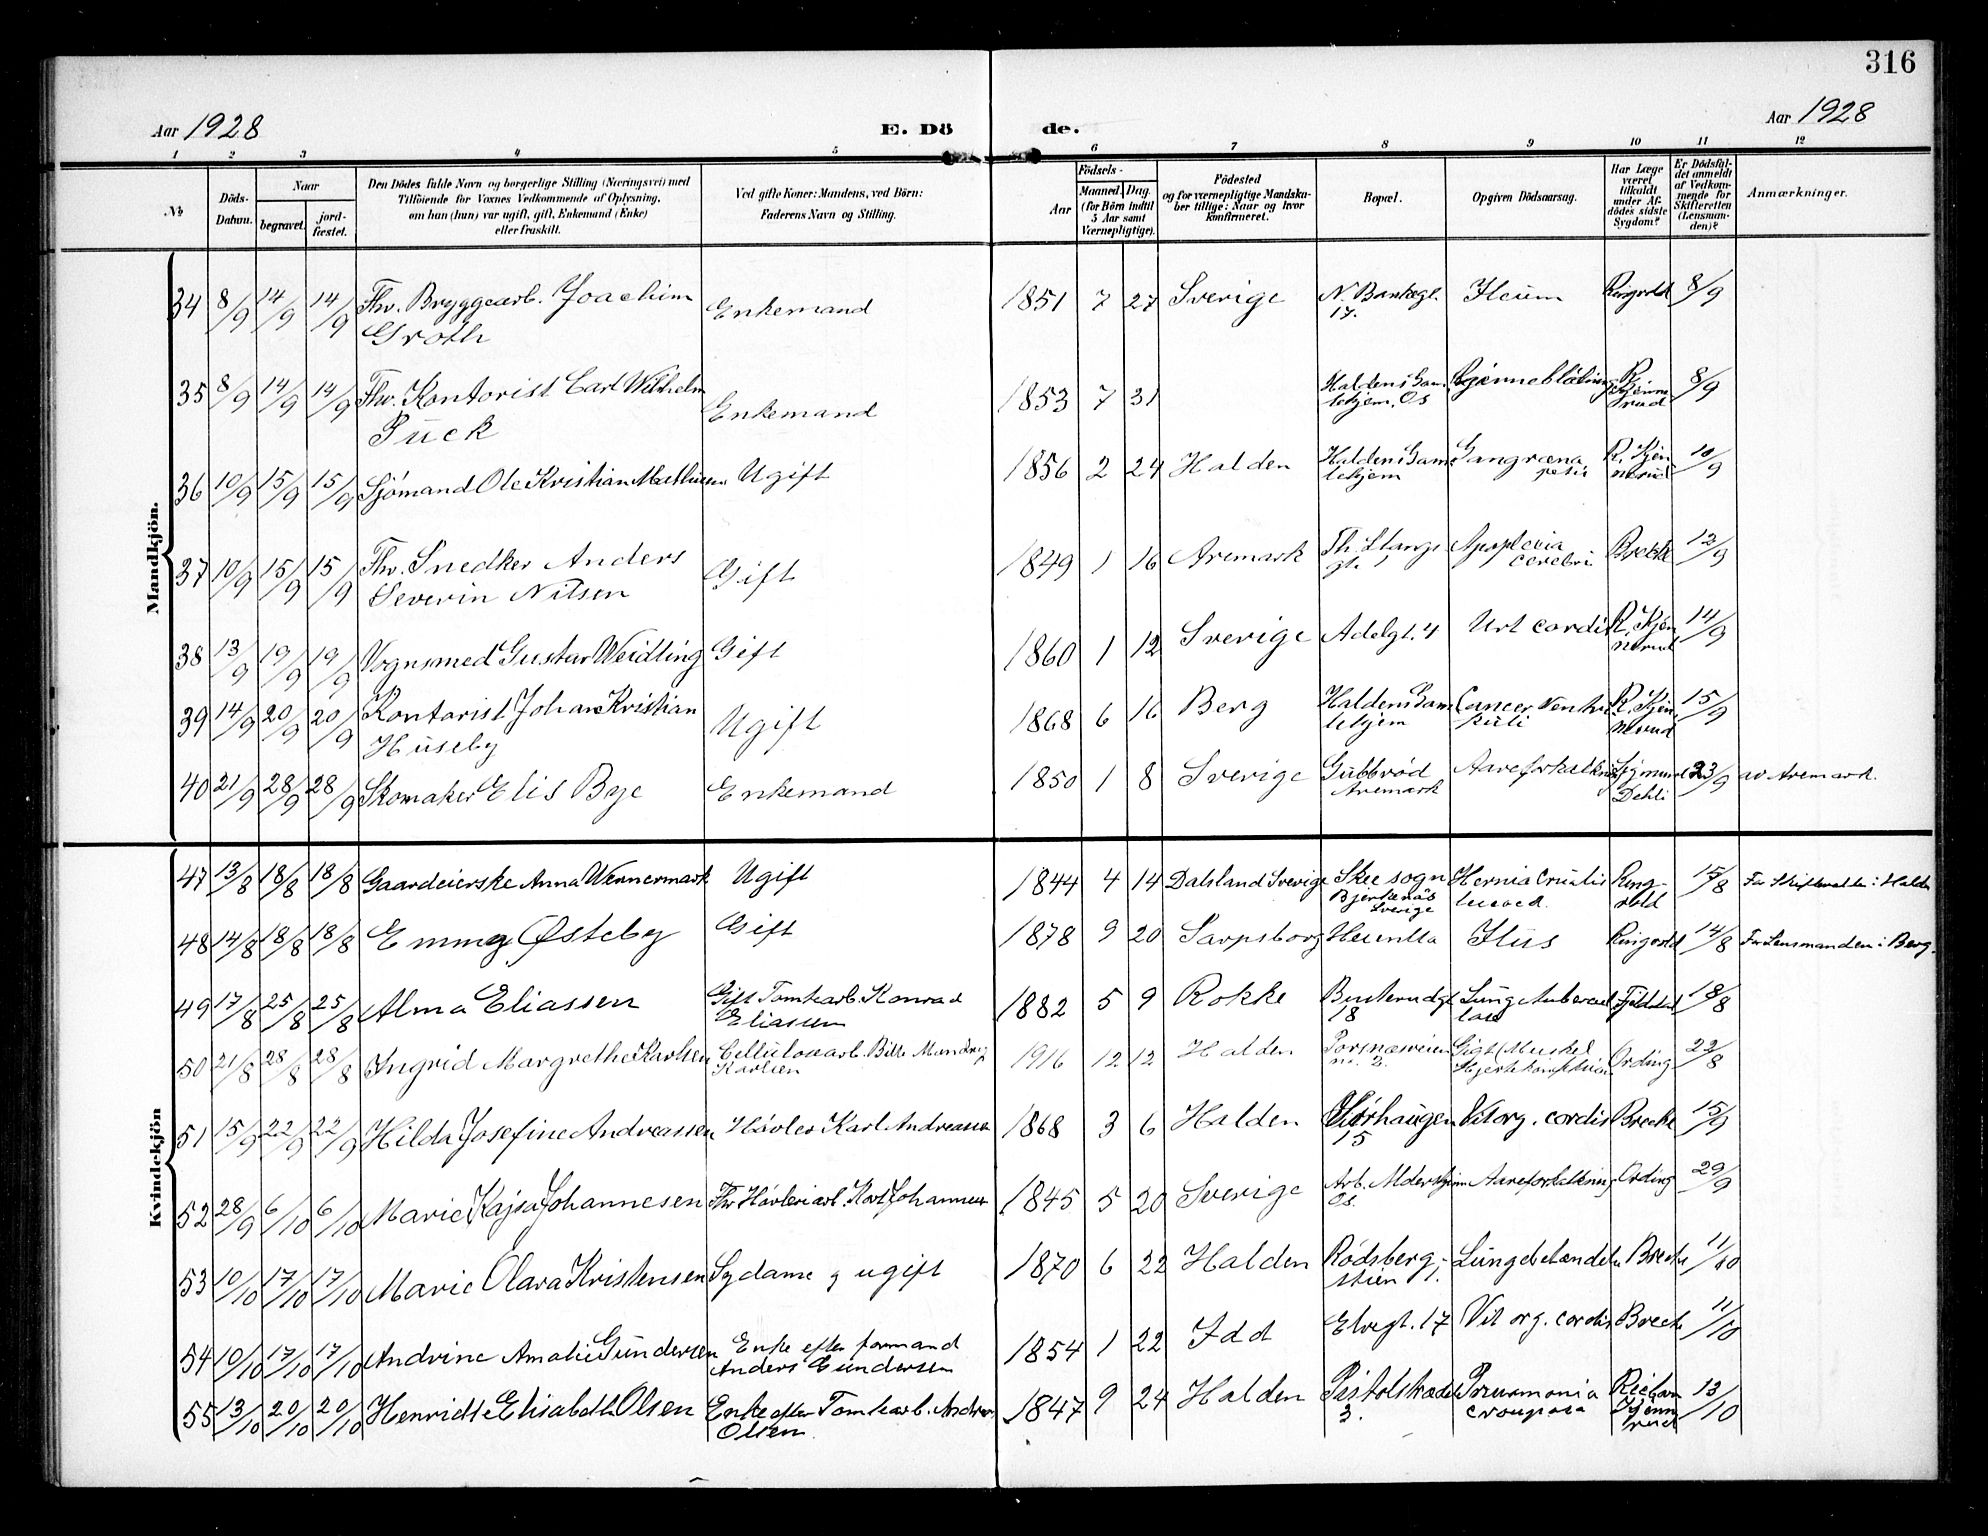 316
Aar 1928
E. Dö
de.
Aar 1928
1 2 3 4 5 6 7 8 9 10 11 12
№
Döds-Datum.
Naar
begravet.
jord-fæstet.
Den Dödes fulde Navn og borgerlige Stilling (Næringsvei) med
Tilföiende for Voxnes Vedkommende af Oplysning,
om han (hun) var ugift, gift, Enkemand (Enke)
eller fraskilt.
Ved gifte Koner: Mandens, ved Börn:
Faderens Navn og Stilling.
Födsels-
Aar
Maaned. Dag.
(for Börn indtil
5 Aar samt
Værnepligtige).
Födested
og for værnepligtige Mandska-
ber tillige: Naar og hvor
konfirmeret.
Bopæl.
Opgiven Dödsaarsag.
Har Læge
været
tilkaldt
under Af-
dödes sidste
Sygdom?
Er Dödsfal-
det anmeldt
af Vedkom-
mende for
Skifteretten
(Lensman-
den)?
Anmærkninger.
Mandkjön.
34 8/9 14/9 14/9 Fhv. Bryggearb. Joachim Groth Enkemand 1851 7 27 Sverige N. Bankegt. 17. Ileum Ringvold 8/9
35 8/9 14/9 14/9 Fhv. Kontorist Carl Wilhelm Puck Enkemand 1853 7 31 Haldens Gam lehjem, Os Hjerneblødning R. Kjenne rud 8/9
36 10/9 15/9 15/9 Sjömand Ole Kristian Mathisen Ugift 1856 2 24 Halden Haldens Gam lehjem Gangræna pedis R. Kjen nerud 10/9
37 10/9 15/9 15/9 Fhv. Snedker Anders Severin Nilsen Gift 1849 1 16 Aremark Th. Stangs gt. Apoplexia cerebri Brekke 12/9
38 13/9 19/9 19/9 Vognsmed Gustav Weidling Gift 1860 1 12 Sverige Adelgt. 4 Vit cordis R. Kjen nerud 14/9
39 14/9 20/9 20/9 Kontorist Johan Kristian Huseby Ugift 1868 6 16 Berg Haldens Gam lehjem Cancer Ventri kuli R. Kjen nerud 15/9
40 21/9 28/9 28/9 Skomaker Elis Bye Enkemand 1850 1 8 Sverige Gubbrød Aremark Aareforkalkn. Sigmund Dehli 23/9 av Aremark.
Kvindekjön
47 13/8 18/8 18/8 Gaardeierske Anna Wennermark Ugift 1844 4 14 Dalsland Sverige Skee sogn Bjerkenäs Sverige Hernia Cruralis Ring-vold 15/8 For Skifteretten i Halden
48 14/8 18/8 18/8 Emmy Østeby Gift 1878 9 20 Sarpsborg Ilius Ringvold 14/8 For Lensmanden i Berg.
49 17/8 25/8 25/8 Alma Eliassen Gift Tomtearb. Konrad Eliassen 1882 5 9 Rokke Buskerudgt 18 Lungetubercu lose Fjeldstad 18/8
50 21/8 28/8 28/8 Ingrid Margrethe Karlsen Cellulosearb. Karlsen 1916 12 12 Halden Porsnesveien no. 2. Gigt (Muskel Hjertekomplikation Ording 22/8
51 15/9 22/9 22/9 Hilda Josefine Andreassen Høvler Karl Andreassen 1868 3 6 Halden 15 Vit org. cordis Brecke 15/9
52 28/9 6/10 6/10 Marie Kajsa Johannesen Fhv Høvleriarb. Karl Johannesen 1845 5 20 Sverige Arb. Aldershjem Os. Aareforkalkning Ording 29/9
53 10/10 17/10 17/10 Marie Olava Kristensen Sydame, ugift 1870 6 22 Halden Rødsberg-stien 1. Lungebetændelse Brecke 11/10
54 10/10 17/10 17/10 Andrine Amalie Gundersen Enke efter formand Anders Gundersen 1854 1 22 Idd Elvegt. 17 Vit org. cordis Brecke 11/10
55 13/10 20/10 20/10 Henridte Elisabeth Olsen Enke efter Tomtearb. Andreas Olsen 1847 9 24 Halden Pistolstrædet 3. Pneumonia crouposa Richard Kjenne rud 13/10